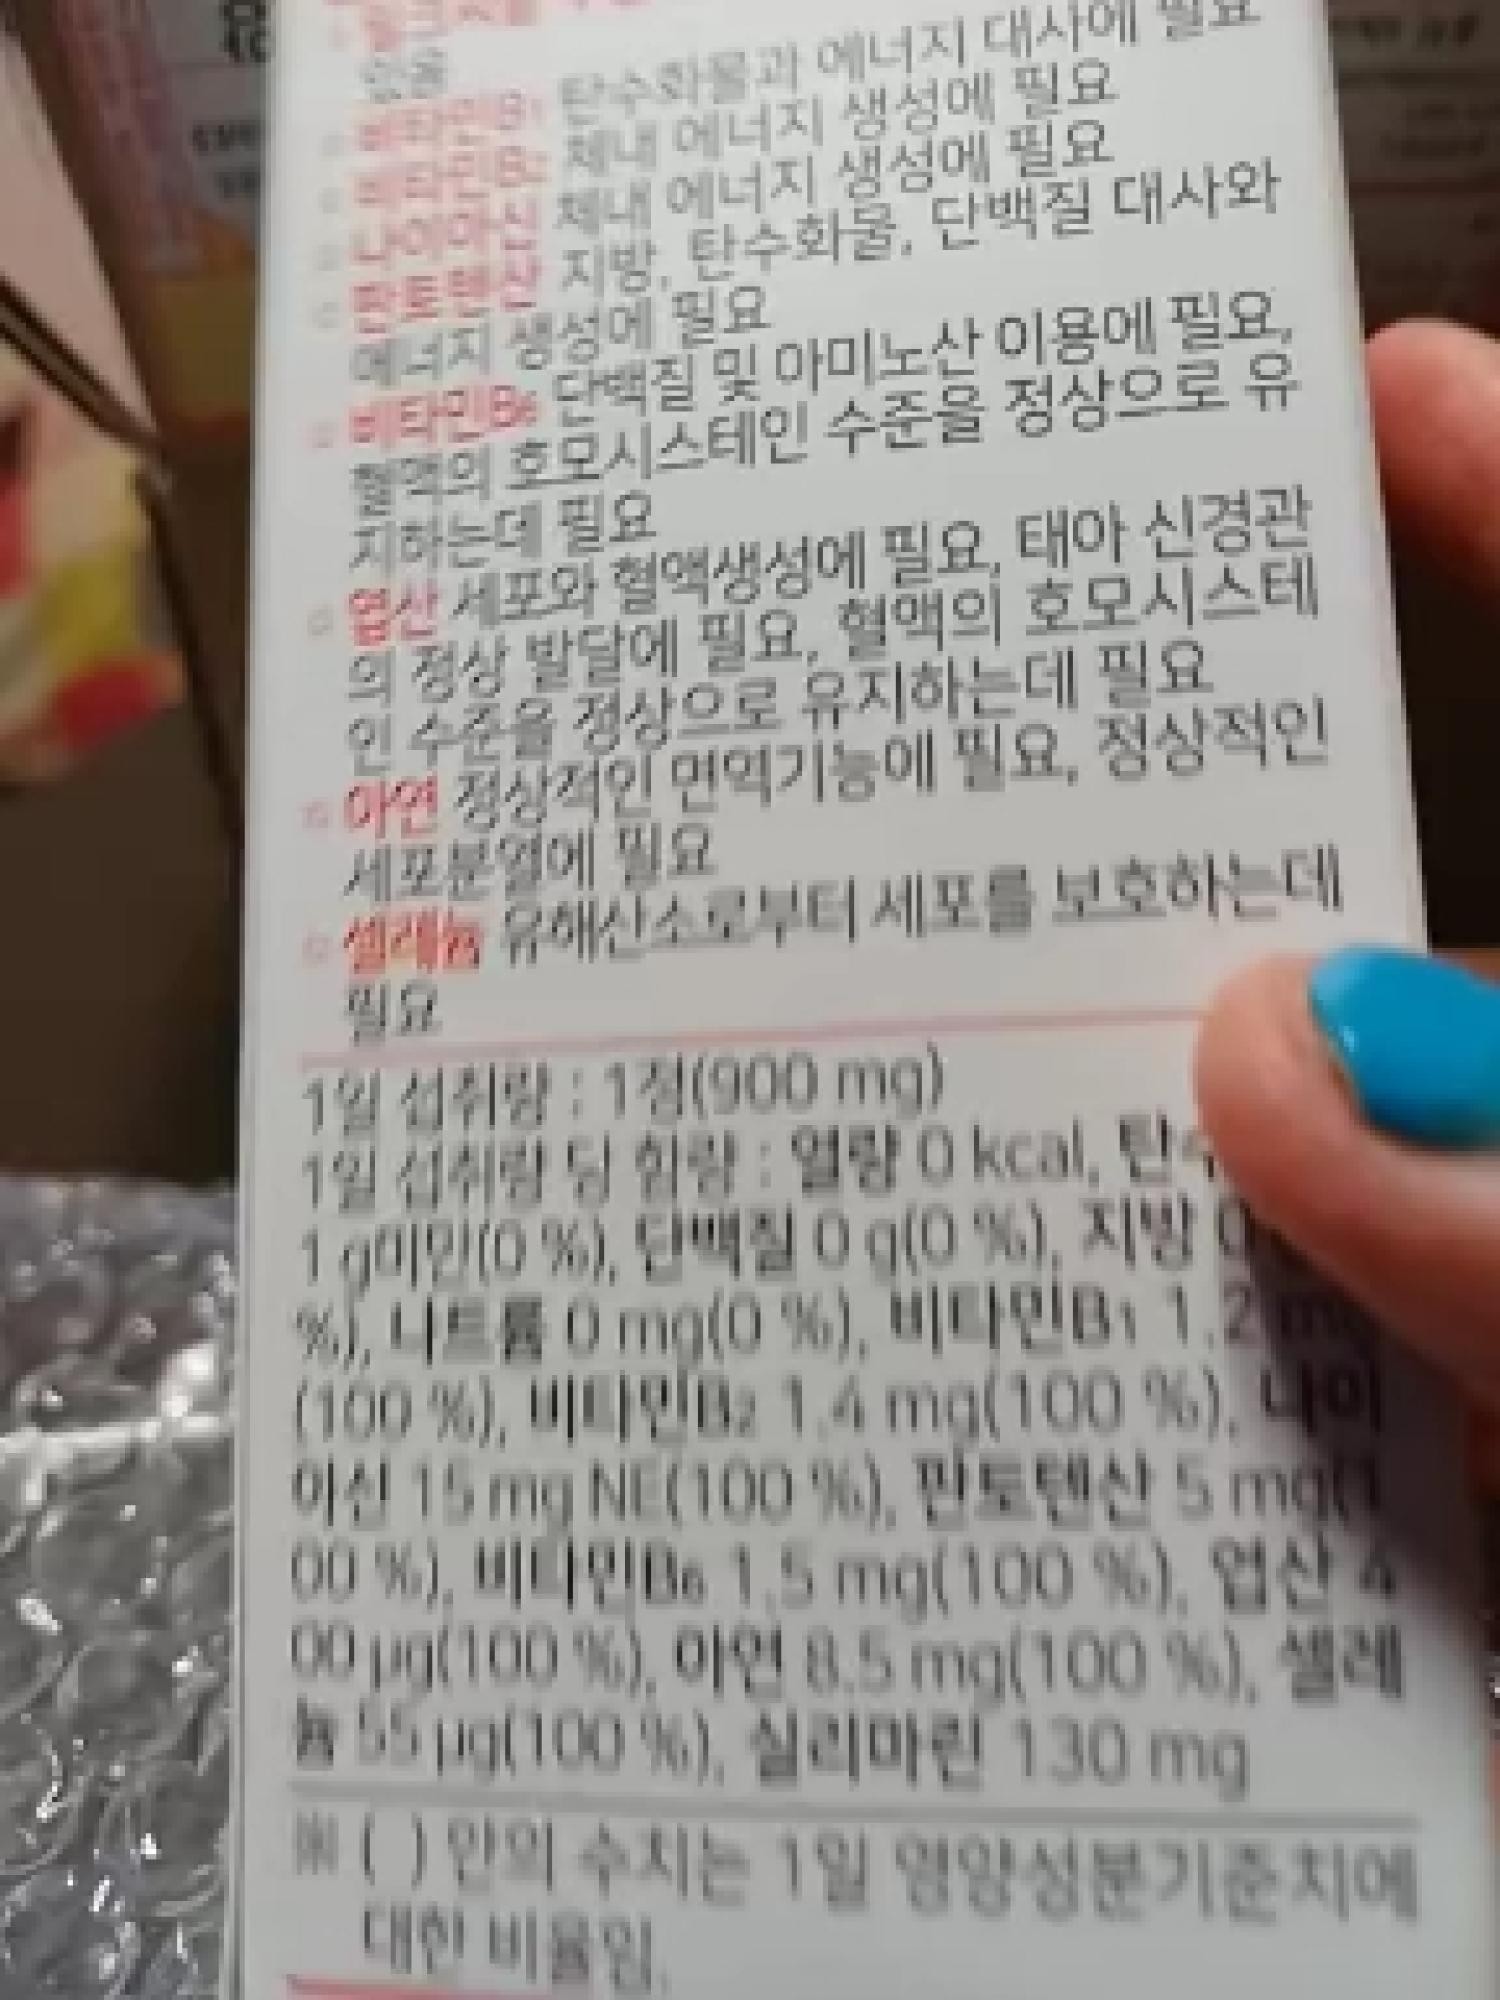 있음
비타민B₁ 탄수화물과 에너지 대사에 필요
비타민B₂ 체내 에너지 생성에 필요
나이아신 체내 에너지 생성에 필요
판토텐산 지방, 탄수화물, 단백질 대사와
에너지 생성에 필요
비타민B₆ 단백질 및 아미노산 이용에 필요,
혈액의 호모시스테인 수준을 정상으로 유
지하는데 필요
엽산 세포와 혈액생성에 필요, 태아 신경관
의 정상 발달에 필요, 혈액의 호모시스테
인 수준을 정상으로 유지하는데 필요
아연 정상적인 면역기능에 필요, 정상적인
세포분열에 필요
셀레늄 유해산소로부터 세포를 보호하는데
필요
1일 섭취량 : 1정(900 mg)
1일 섭취량 당 함량 : 열량 0 kcal, 탄
1 g미만(0 %), 단백질 0 g(0 %), 지방 0
%), 나트륨 0 mg(0 %), 비타민B₁ 1.2 mg
(100 %), 비타민B₂ 1.4 mg(100 %), 나이
아신 15 mg NE(100 %), 판토텐산 5 mg(1
00 %), 비타민B₆ 1.5 mg(100 %), 엽산 4
00 μg(100 %), 아연 8.5 mg(100 %), 셀레
늄 55 μg(100 %), 실리마린 130 mg
※ ( ) 안의 수치는 1일 영양성분기준치에
대한 비율임.